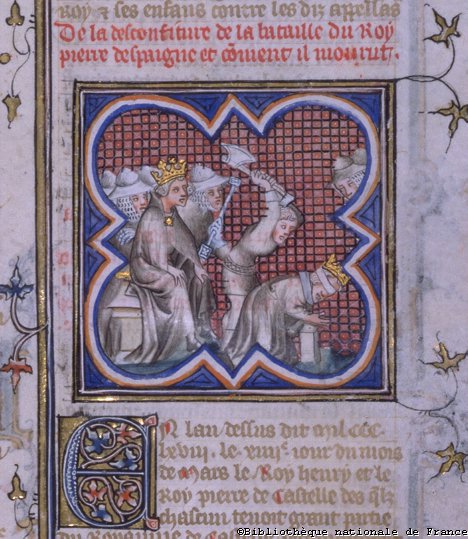 roy et ses enfans contre les diz appellans
De la desconfiture de la bataille du Roy
pierre despaigne et coment il mourut.
En lan dessus dit mil ccc
lxviii. le xiiii. iour du mois
de Mars le Roy henry et le
Roy pierre de Castelle des qlz
chascun tenoit grant partie
du Royaume de
©Bibliothèque nationale de France